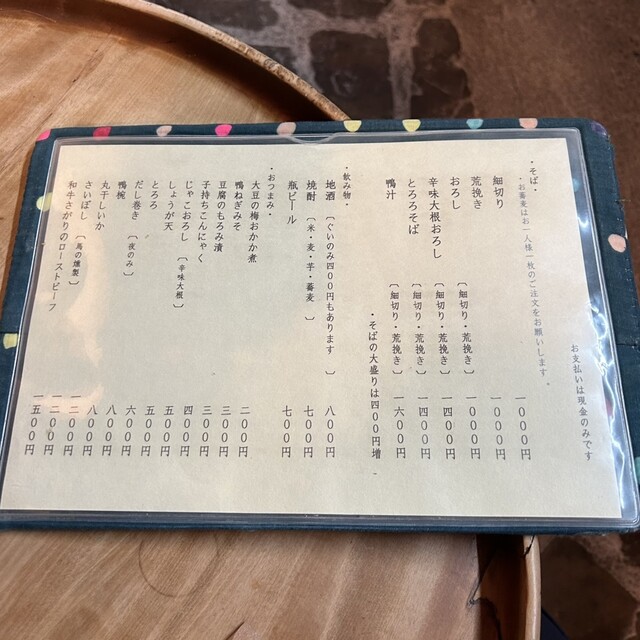 お支払いは現金のみです
・そば・
・お蕎麦はお一人様一枚のご注文をお願いします。
細切り 一000円
荒挽き 一000円
おろし 〔細切り・荒挽き〕 一000円
辛味大根おろし 〔細切り・荒挽き〕 一四00円
とろろそば 〔細切り・荒挽き〕 一四00円
鴨汁 〔細切り・荒挽き〕 一六00円
・そばの大盛りは四00円増
・飲み物・
地酒 〔ぐいのみ四00円もあります〕 八00円
焼酎 〔米・麦・芋・蕎麦〕 七00円
瓶ビール 七00円
・おつまみ・
大豆の梅おかか煮 二00円
鴨ねぎみそ 三00円
豆腐のもろみ漬 三00円
子持ちこんにゃく 四00円
じゃこおろし 〔辛味大根〕 五00円
しょうが天 五00円
とろろ 六00円
だし巻き 〔夜のみ〕 八00円
鴨椀 八00円
丸干しいか 一二00円
さいぼし 〔馬の燻製〕 一二00円
和牛さがりのローストビーフ 一五00円